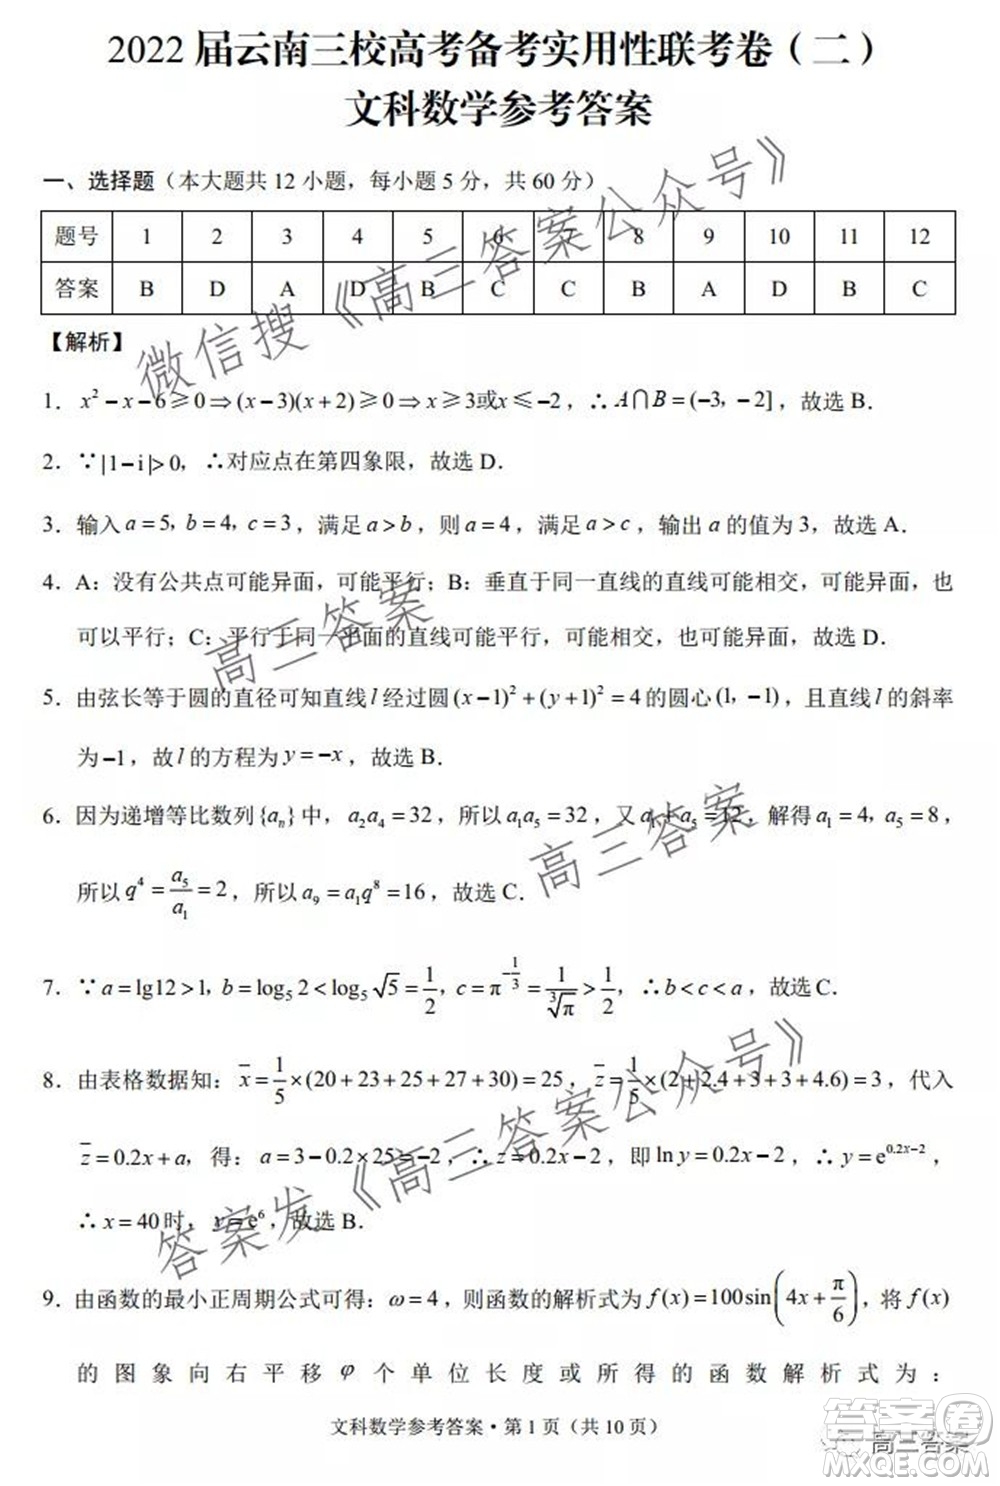 2022 届云南三校高考备考实用性联考卷（二）
文科数学参考答案
一、选择题（本大题共 12 小题，每小题 5 分，共 60 分）
题号 1 2 3 4 5 6 7 8 9 10 11 12
答案 B D A D B C C B A D B C
【解析】
微信搜《高三答案公众号》
1．x²－x－6≥0⇒(x－3)(x＋2)≥0⇒x≥3或x≤－2，∴A∩B＝(－3，－2]，故选 B．
2．∵|1－i|>0，∴对应点在第四象限，故选 D．
3．输入 a＝5，b＝4，c＝3，满足 a>b，则 a＝4，满足 a>c，输出 a 的值为 3，故选 A．
4．A：没有公共点可能异面，可能平行；B：垂直于同一直线的直线可能相交，可能异面，也
可以平行；C：平行于同一平面的直线可能平行，可能相交，也可能异面，故选 D．
高三答案
5．由弦长等于圆的直径可知直线 l 经过圆 (x－1)²＋(y＋1)²＝4 的圆心 (1，－1)，且直线 l 的斜率
为 －1，故 l 的方程为 y＝－x，故选 B．
6．因为递增等比数列 {aₙ} 中，a₂a₄＝32，所以 a₁a₅＝32，又 a₁＋a₅＝12，解得 a₁＝4，a₅＝8，
所以 q⁴＝a₅/a₁＝2，所以 a₉＝a₁q⁸＝16，故选 C．
高三答案
7．∵a＝lg12>1，b＝log₅2<log₅√5＝1/2，c＝π^(－1/3)＝1/∛π>1/2，∴b<c<a，故选 C．
8．由表格数据知：x̄＝1/5×(20＋23＋25＋27＋30)＝25，z̄＝1/5×(2＋2.4＋3＋3＋4.6)＝3，代入
z̄＝0.2x＋a，得：a＝3－0.2×25＝－2，∴z＝0.2x－2，即 ln y＝0.2x－2，∴y＝e^(0.2x－2)，
∴x＝40时，y＝e⁶，故选 B．
答案发《高三答案公众号》
9．由函数的最小正周期公式可得：ω＝4，则函数的解析式为 f(x)＝100sin(4x＋π/6)，将 f(x)
的图象向右平移 φ 个单位长度或所得的函数解析式为：
文科数学参考答案·第 1 页（共 10 页）
高三答案
答案卷
MXQE.COM